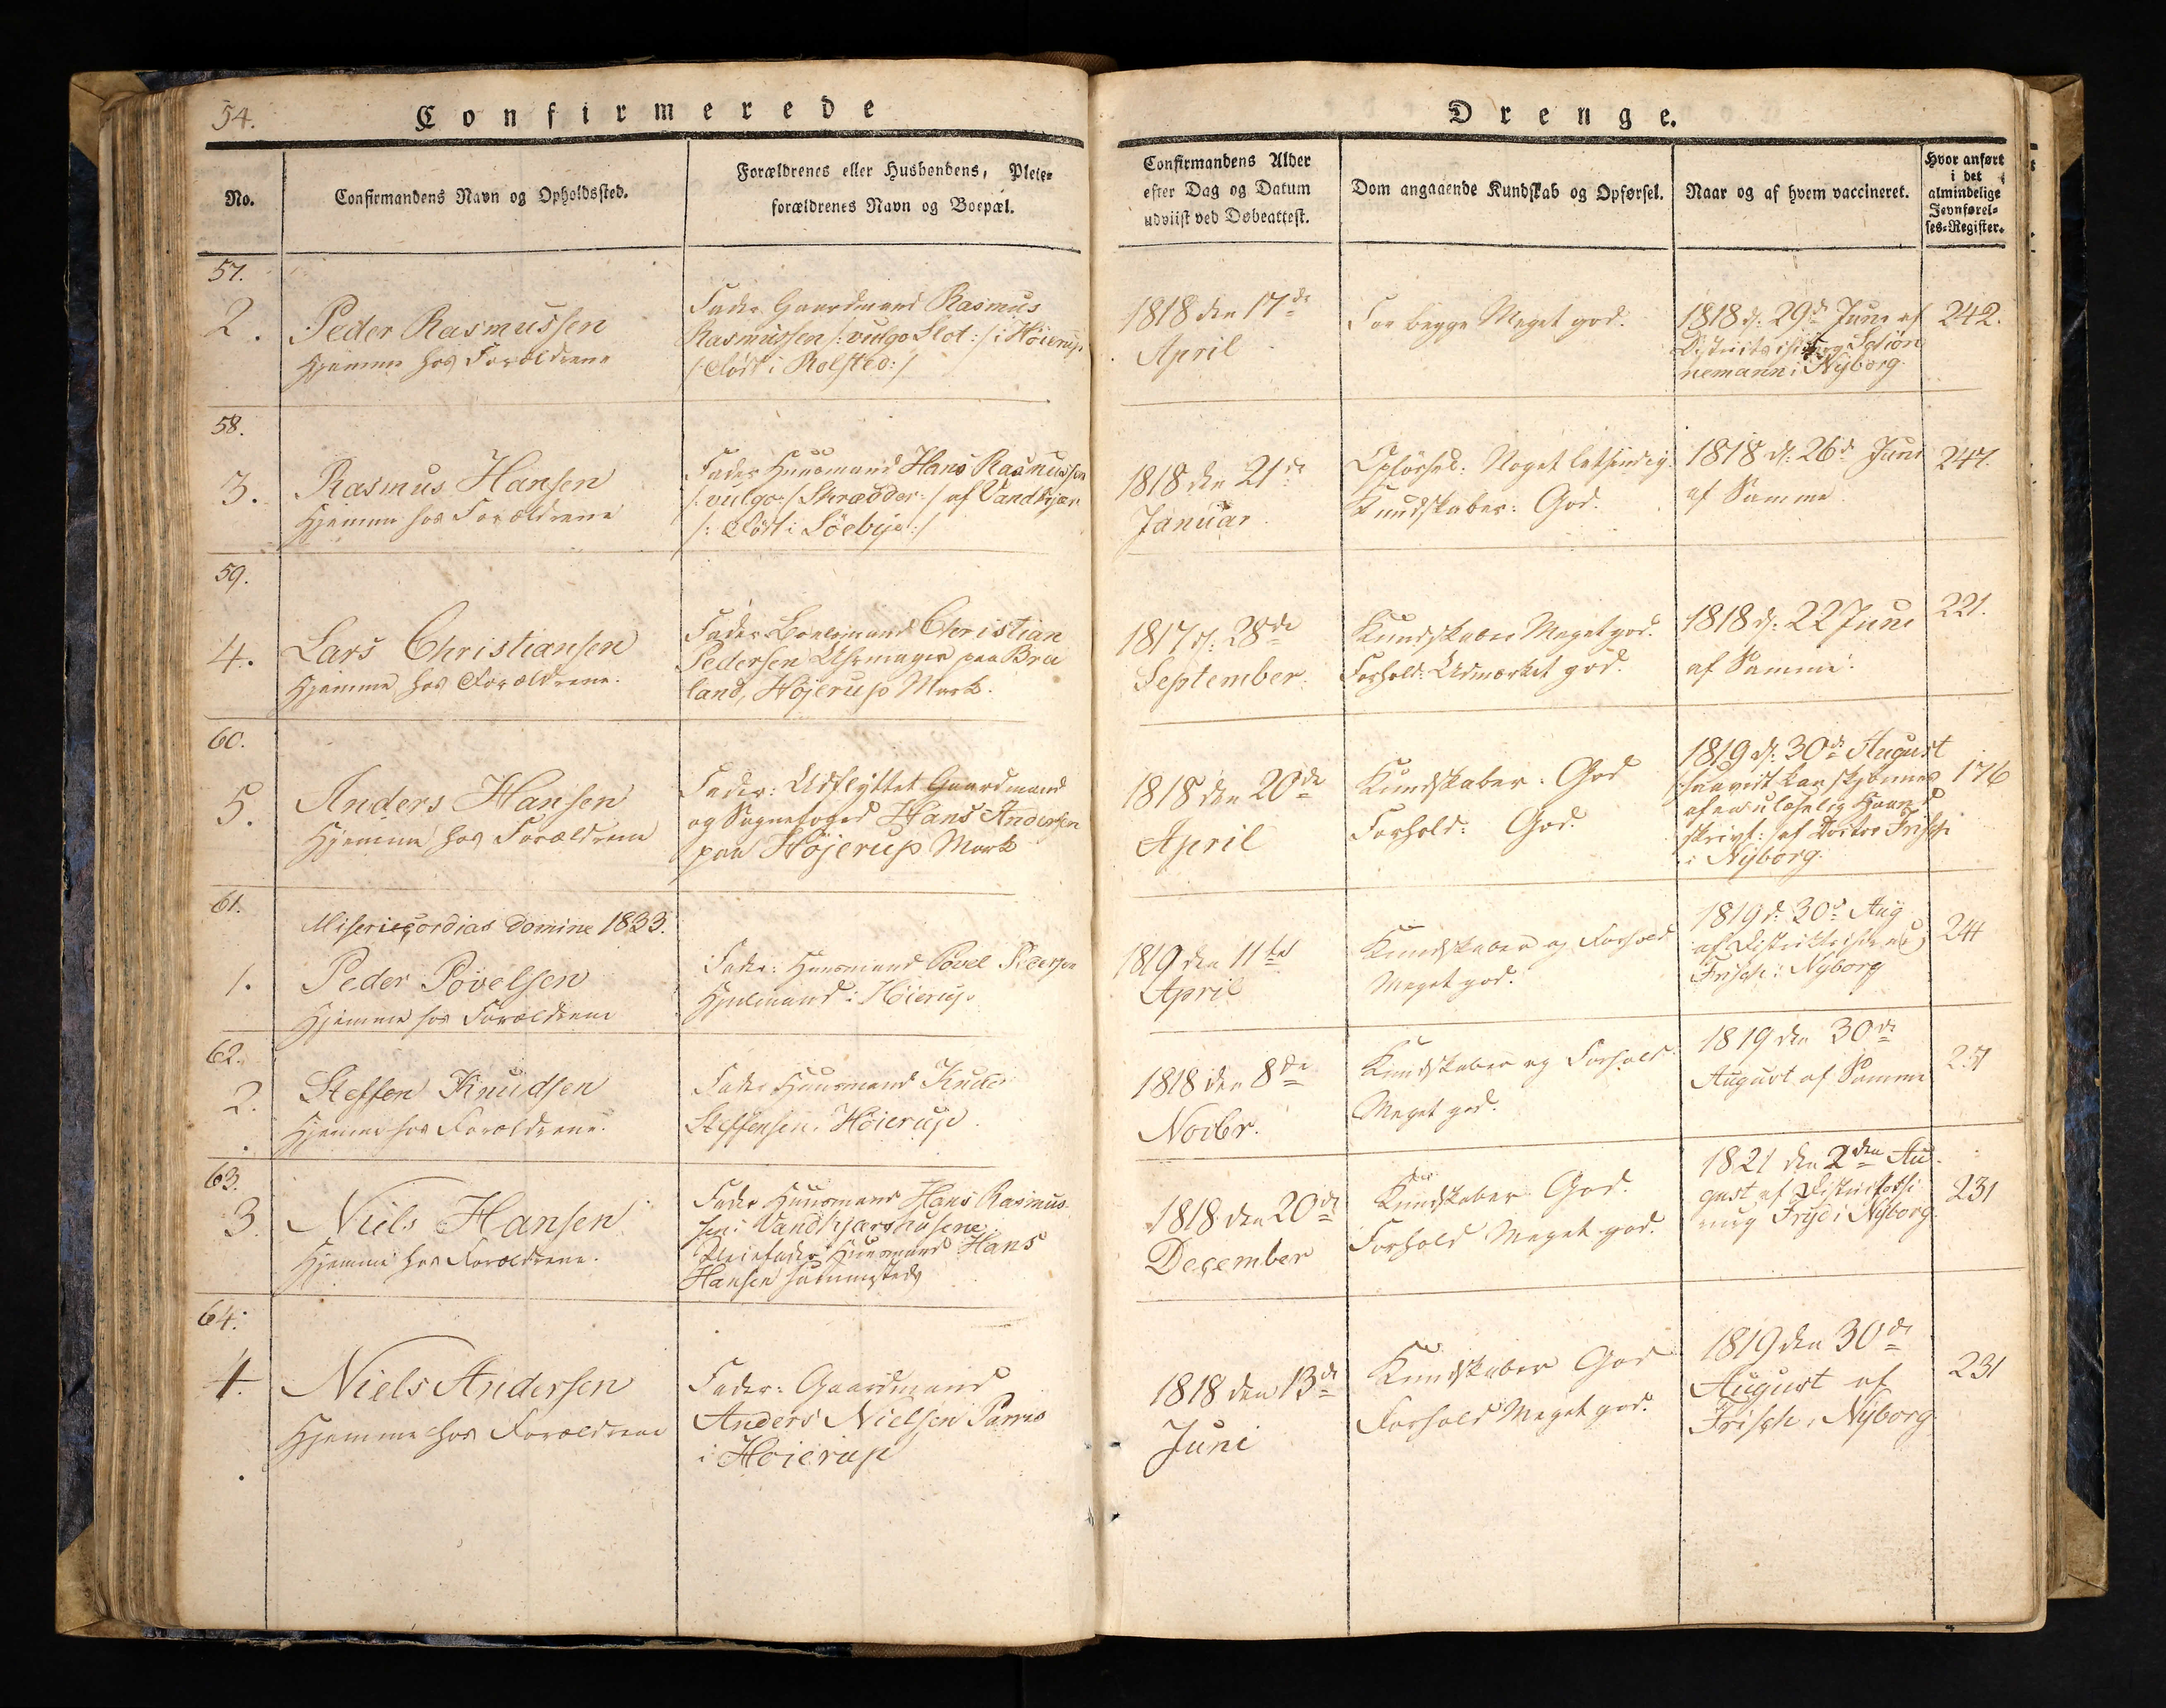 54.
Confirmerede
Drenge.
No.
Confirmandens Navn og Opholdssted.
Forældrenes eller Husbondens, Pleie-
forældrenes Navn og Boepæl.
Confirmandens Alder
efter Dag og Datum
udviist ved Døbeattest.
Dom angaaende Kundskab og Opførsel.
Naar og af hvem vaccineret.
Hvor anført
i det
almindelige
Jevnførel-
ses-Register.
57.
2.
Peder Rasmussen
Hjemme hos Forældrene
Fader Gaardmand Rasmus
Rasmussen /: vulgo Slot :/ i Høierup
/: Født i Rolfsted :/
1818 den 17de
April
For begge Meget god.
1818 d: 29de Juni af
Districtschirurg Schiøn
nemann i Nyborg.
242.
58.
3.
Rasmus Hansen
Hjemme hos Forældrene
Fader Huusmand Hans Rasmussen
/: vulgo :/ Skrædder :/ af Vandkjær
/: Født i Söebye :/
1818 den 21de
Januar.
Opførsel: Noget letsindig.
Kundskaber: God.
1818 d: 26de Juni
af Samme.
247.
59.
4.
Lars Christiansen
Hjemme hos Forældrene.
Fader Boelsmand Christian
Pedersen Uhrmager paa Bra
land, Höjerup Mark.
1817 d: 28de
September.
Kundskaber Meget god.
Forhold: Udmærket god.
1818 d: 22 Juni
af Samme.
221.
60.
5.
Anders Hansen
Hjemme hos Forældrene
Fader: Udflyttet Gaardmand
og Sognefoged Hans Andersen
paa Höjerup Mark
1818 den 20de
April
Kundskaber: God
Forhold: God.
1819 d: 30de August
/: saavidt kan skjønnes
af en ulæselig Haand
skrivt :/ af Doctor Frisch
i Nyborg.
176
61.
Misericordias Domine 1833.
1.
Peder Povelsen
Hjemme hos Forældrene
Fader: Huusmand Povel Pedersen
Hjulmand i Höierup
1819 den 11te
April
Kundskaber og Forhold
Meget god.
1819 d: 30de Aug
af
Frisch i Nyborg
244
62.
2.
Steffen Knudsen
Hjemme hos Forældrene.
Fader Huusmand Knud
Steffensen i Höierup.
1818 den 8de
Novbr.
Kundskaber og Forhold
Meget god.
1819 den 30de
August af Samme
251
63.
3.
Niels Hansen
Hjemme hos Forældrene.
Fader Huusmand Hans Rasmus
sen i Vandkjærshusene.
Pleiefader Huusmand Hans
Hansen sammesteds
1818 den 20de
December
Kundskaber God.
Forhold Meget god.
1821 den 2den Au
gust af Districtschi
rurg Frisch i Nyborg.
231
64.
4.
Niels Andersen
Hjemme hos Forældrene
Fader: Gaardmand
Anders Nielsen
i Høierup
1818 den 13de
Juni
Kundskaber God
Forhold Meget god.
1819 den 30de
August af
Frisch i Nyborg
231